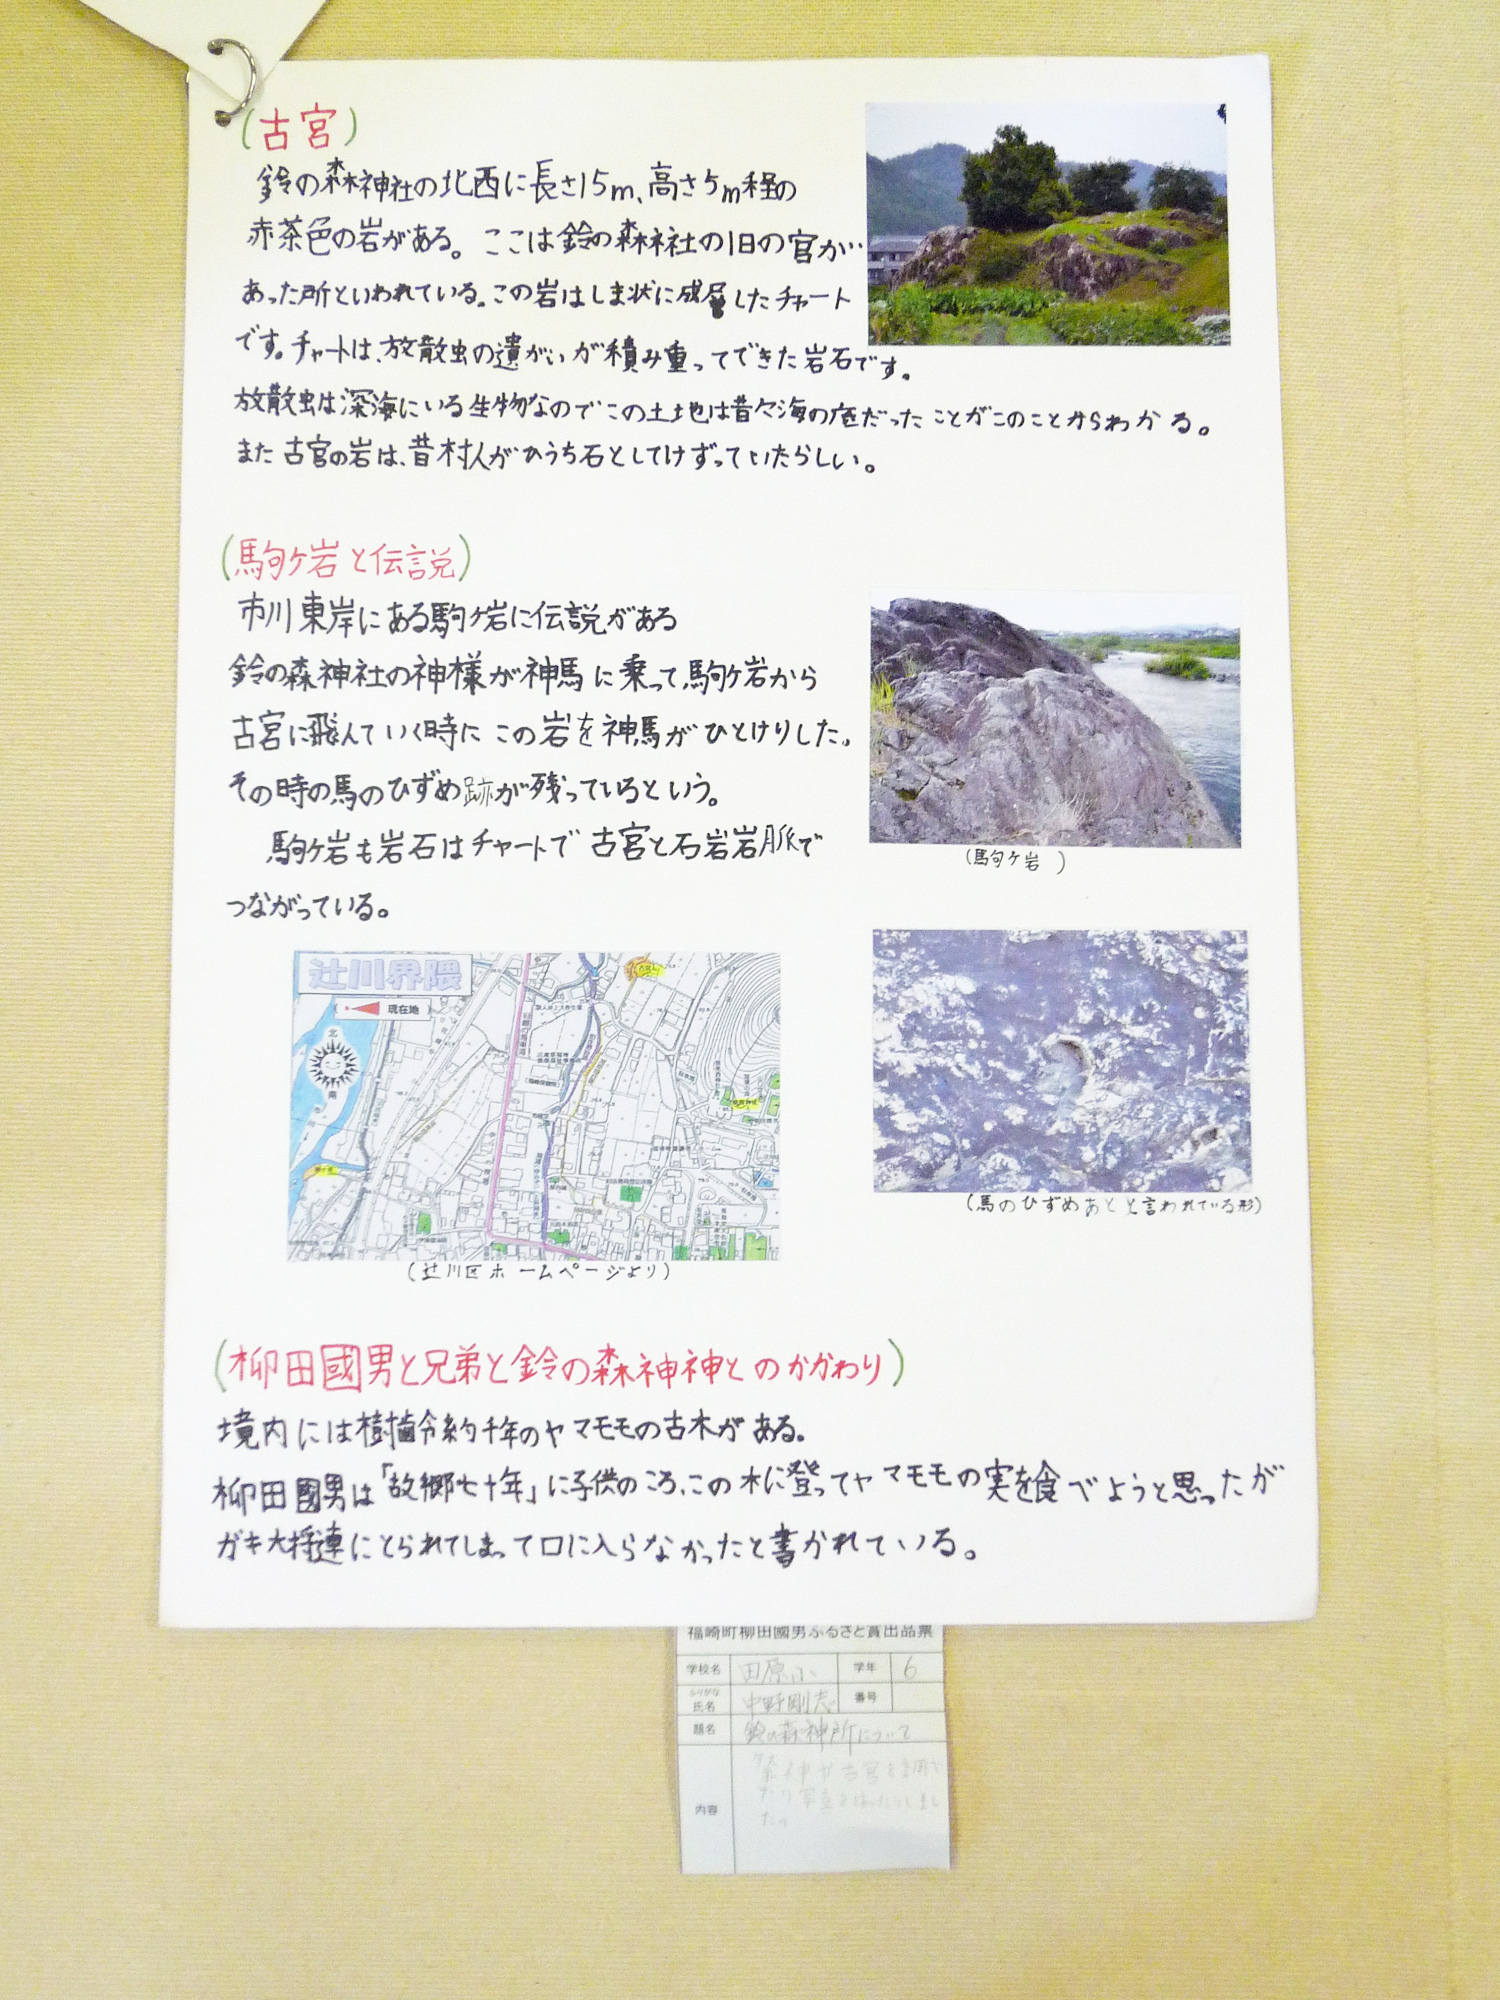 (古宮)
鈴の森神社の北西に長さ15m、高さ5m程の
赤茶色の岩がある。ここは鈴の森神社の旧の宮が
あった所といわれている。この岩はしま状に成層したチャート
です。チャートは、放散虫の遺がいが積み重ってできた岩石です。
放散虫は深海にいる生物なのでこの土地は昔々海の底だったことがこのことからわかる。
また古宮の岩は、昔村人がひうち石としてけずっていたらしい。
(駒ヶ岩と伝説)
市川東岸にある駒ヶ岩に伝説がある
鈴の森神社の神様が神馬に乗って駒ヶ岩から
古宮に飛んでいく時にこの岩を神馬がひとけりした。
その時の馬のひずめ跡が残っているという。
駒ヶ岩も岩石はチャートで古宮と石岩岩脈で
つながっている。
(駒ヶ岩)
辻川界隈
現在地
北
南
(辻川区ホームページより)
(馬のひずめあとと言われている形)
(柳田國男と兄弟と鈴の森神神とのかかわり)
境内には樹齢約千年のヤマモモの古木がある。
柳田國男は「故郷七十年」に子供のころ、この木に登ってヤマモモの実を食べようと思ったが
ガキ大将連にとられてしまって口に入らなかったと書かれている。
福崎町柳田國男ふるさと賞出品票
学校名 田原小 学年 6
ふりがな
氏名 中野剛志 番号
題名 鈴の森神所について
内容